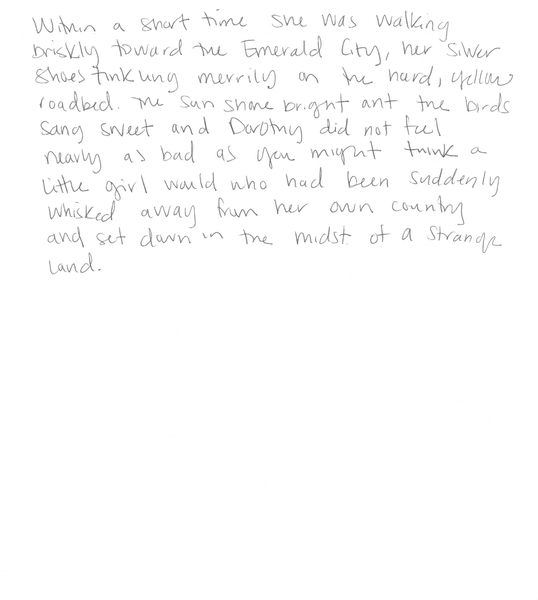 Within a short time she was walking
briskly toward the Emerald City, her silver
shoes tinkling merrily on the hard, yellow
roadbed. The sun shone bright and the birds
sang sweet and Dorothy did not feel
nearly as bad as you might think a
little girl would who had been suddenly
whisked away from her own country
and set down in the midst of a strange
land.